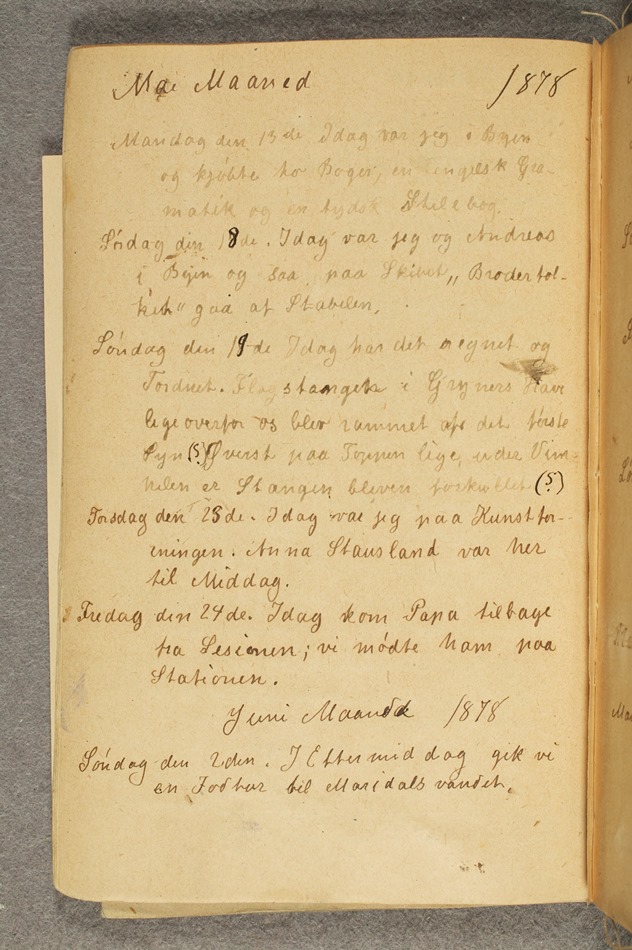 Mai Maaned 1878
Mandag den 13de Idag var jeg i Byen
og kjøbte to Bøger, en engelsk Gra-
matik og en tydsk Stilebog.
Lördag den 18de. Idag var jeg og Andreas
i Byen og saa paa Skibet „Broderfol-
ket" gaa af Stabelen.
Söndag den 19de Idag har det regnet og
Tordnet. Flagstangen i Gryners Have
ligeoverfor os blev rammet af det første
Lyn (S) Øverst paa Toppen lige under Vim-
pelen er Stangen bleven (S)
Torsdag den 23de. Idag var jeg paa Kunstfor-
eningen. Anna Stausland var her
til Middag.
Fredag den 24de. Idag kom Papa tilbage
fra Sesionen; vi mødte ham paa
Stationen.
Juni Maaned 1878
Söndag den 2den. I Eftermiddag gik vi
en Fodtur til Maridalsvandet.